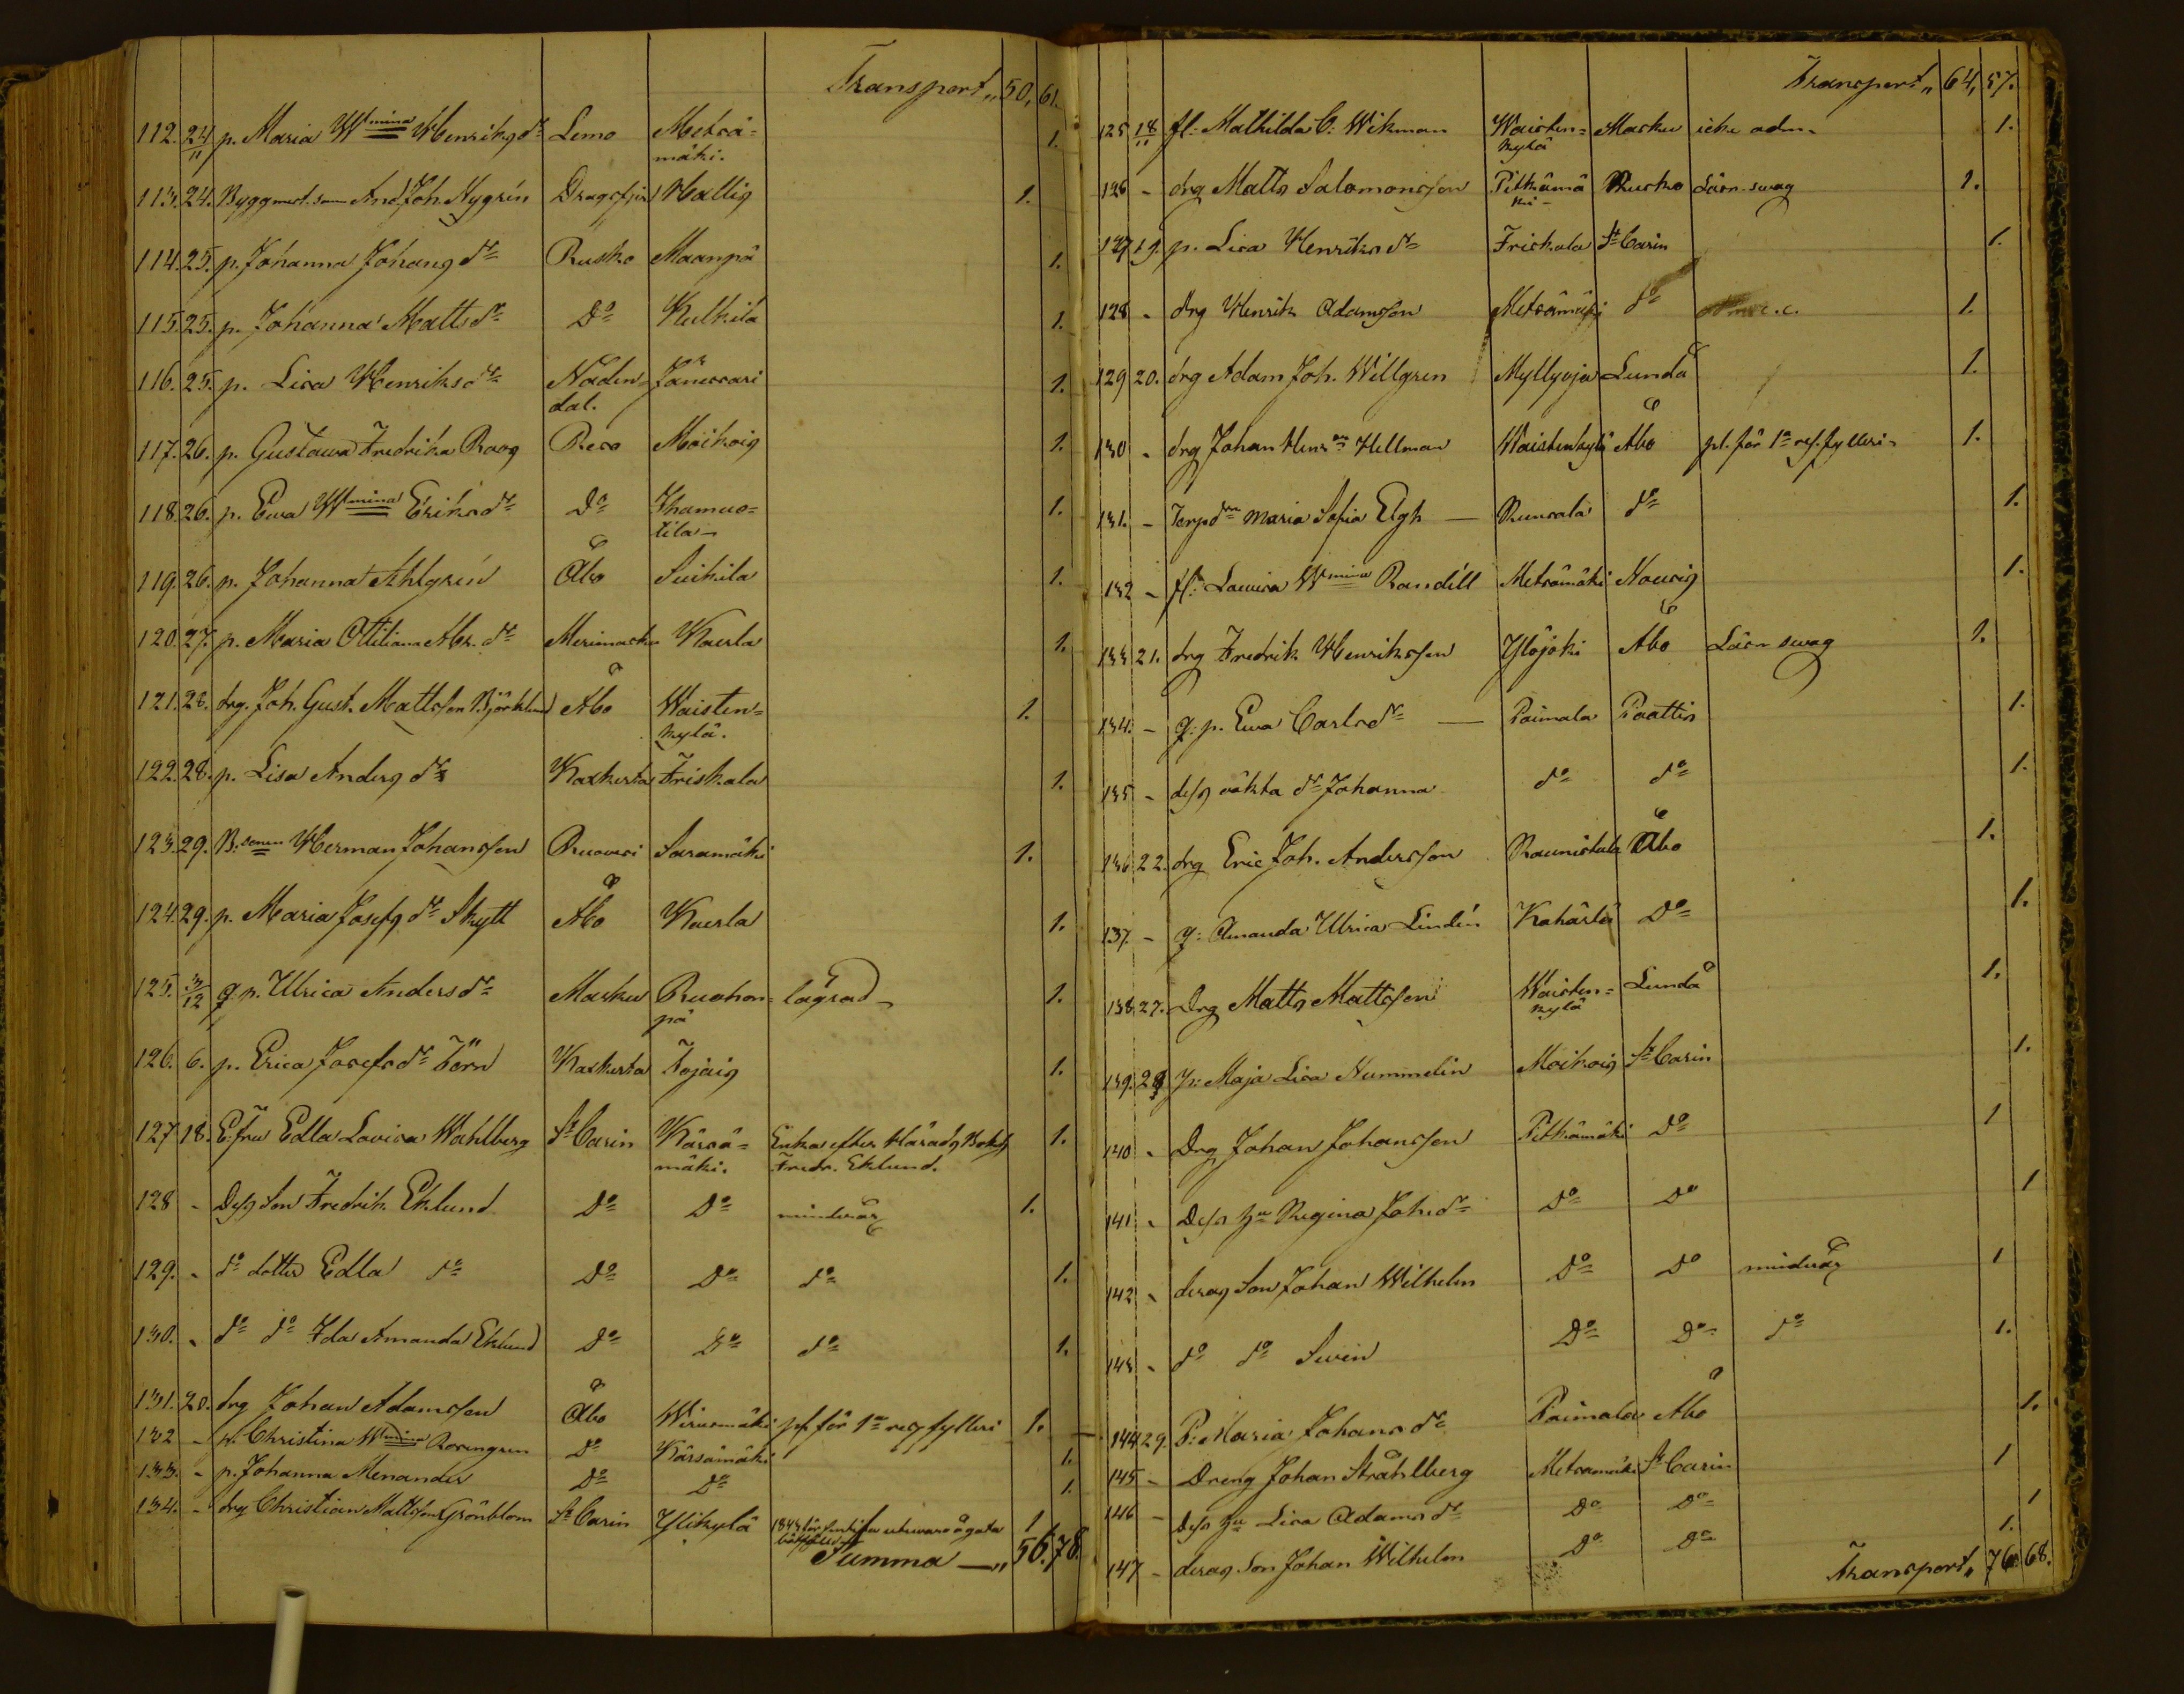 Transport „ 50, 61.
112. 24/11 p. Maria Wmina Henriksdr Lemo Metsä= 1.
mäki.
113. 24. Byggmest. son And Joh. Nygrén Dragsfjerd Hallis 1.
114. 25. p. Johanna Johansdr Rusko Maanpä 1.
115. 25. p. Johanna Mattsdr Do Kulkila 1.
116. 25. p. Lisa Henriksdr Nåden= Jänessari 1.
dal.
117. 26. p. Gustawa Fredrika Roos Reso Moikois 1.
118. 26. p. Ewa Wmina Eriksdr Do Ihamuo= 1.
tila
119. 26. p. Johanna Ahlgrén Åbo Suikila 1.
120. 27. p. Maria Ottiliana Abr. dr Merimasku Kaerla 1.
121. 28. drg. Joh. Gust. Mattsson Björklund Åbo Waisten= 1.
kylä.
122. 28. p. Lisa Anders dr Kakskerta Friskala 1.
123. 29. B. sonen Herman Johansson Ruovesi Saramäki 1.
124. 29. p. Maria Josefs dr Skytt Åbo Kaerla 1.
125. 3/12 q. p. Ulrica Anders dr Masku Ruohon= lägrad 1.
pä
126. 6. p. Erica Josefs dr Törn Kakskerta Tojais 1.
127 18. E. fru Edla Lovisa Wahlberg St Carin Kärsä= Enka efter Härads Bokh 1.
mäki. Fredr. Eklund.
128 - Dess Son Fredrik Eklund Do Do minderår 1.
129. - do dotter Edla do Do Do do 1.
130. - do do Ida Amanda Eklund Do Do do 1.
131. 20. drg Johan Adamsson Åbo Wirusmäki pl. för 1a resg fylleri 1.
132 - p. Christina Wmina Rosengren Do Kärsämäki 1.
133. - p. Johanna Menander Do Do 1.
134. - drg Christian Mattsson Grönblom St Carin Ylikylä 1844 för 1
Summa —„ 56. 78.
Transport „ 64, 57.
125 18/11 fl: Mathilda C: Wikman Waisten= Masku icke adm. 1.
kylä
126 - drg Matts Salomonsson Pitkämä Rusko Läsn. swag 1.
ki
127 19. p. Lisa Henriksdr Friskala St Carin 1.
128 - drg Henrik Adamsson Metsämäki do 1.
129 20. drg Adam Joh. Willgren Myllyoja Lundå 1.
130 - drg Johan Hens. Hellman Waistenkylä Åbo pl. för 1a resg fylleri 1.
131. - Torpdrn Maria Sofia Elgh — Runsala do 1.
132 - fl: Lauvisa Wmina Randéll Metsämäki Nousis 1.
133 21. drg Fredrik Henriksson Ylöjoki Åbo Läsn swag 1.
134. - q. p. Ewa Carlsdr — Paimala Paattis 1.
135 - dess oäkta dr Johanna do do 1.
136 22. drg Eric Joh. Andersson Raunistula Åbo 1.
137. - q: Amanda Ulrica Lindén Kahärlä Do 1.
138. 27. Drg Matts Mattsson Waisten= Lundå 1.
kylä
139. 28 p: Maja Lisa Nummelin Moikois St Carin 1.
140 - Drg Johan Johansson Pitkämäki Do 1
141 - Dess hu Regina Joh. dr Do Do 1
142 - deras Son Johan Wilhelm Do Do minderår 1
143 - do do Swen Do Do do 1.
144 29. P: Maria Johans dr Paimala Åbo 1.
145 - Dreng Johan Stråhlberg Metsämäki St Carin 1
146 - Dess hu Lisa Adams dr Do Do 1
147 - deras Son Johan Wilhelm Do Do 1.
Transport „ 76. 68.